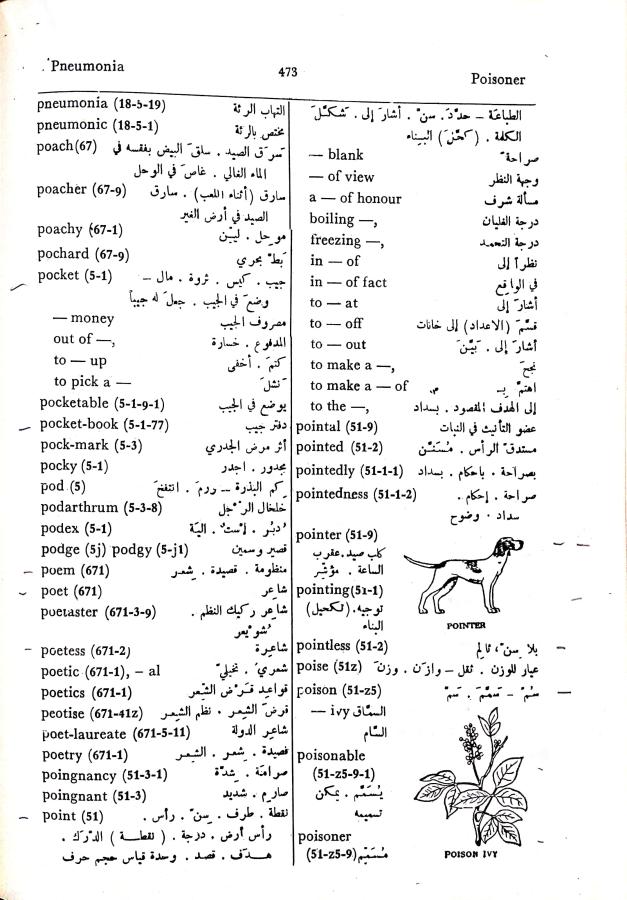 Pneumonia
473
Poisoner
pneumonia (18-5-19) التهاب الرئة
pneumonic (18-5-1) مختص بالرئة
poach(67) سرَق الصيد . سلقَ البيض بفقسه في
الماء الغالي . غاصَ في الوحل
poacher (67-9) سارق (أثناء اللعب) . سارق
الصيد في أرض الغير
poachy (67-1) موحِل . ليّن
pochard (67-9) بَطّ بحري
pocket (5-1) جيب . كيس . ثروة . مال –
وضعَ في الجيب . جعلَ له جيباً
— money مصروف الجيب
out of —, المدفوع . خسارة
to — up كتمَ . أخفى
to pick a — نَشلَ
pocketable (5-1-9-1) يوضع في الجيب
pocket-book (5-1-77) دفتر جيب
pock-mark (5-3) أثر مرض الجدري
pocky (5-1) مجدور . اجدر
pod (5) كِم البذرة – ورمَ . انتفخَ
podarthrum (5-3-8) خلخال الرِّجل
podex (5-1) دُبُر . إست . الية
podge (5j) podgy (5-j1) قصير وسمين
poem (671) منظومة . قصيدة . شعر
poet (671) شاعر
poetaster (671-3-9) شاعر ركيك النظم .
شُويعر
poetess (671-2) شاعرة
poetic (671-1), – al شعريّ . تخيليّ
poetics (671-1) قواعد قَرْض الشِّعر
peotise (671-41z) قرضَ الشعر . نظم الشعر
poet-laureate (671-5-11) شاعر الدولة
poetry (671-1) قصيدة . شعر . الشعر
poingnancy (51-3-1) صرامة . شِدّة
poingnant (51-3) صارم . شديد
point (51) نقطة . طرف . سِنّ . رأس .
رأس أرض . درجة . ( نقطة ) الدَّرَك .
هدف . قصد . وحدة قياس حجم حرف
الطباعة – حدّدَ . سنّ . أشارَ إلى . شكّلَ
الكلمة . (كحّلَ) البناء
— blank صراحةً
— of view وجهة النظر
a — of honour مسألة شرف
boiling —, درجة الغليان
freezing —, درجة التجمد
in — of نظراً إلى
in — of fact في الواقع
to — at أشارَ إلى
to — off قسّمَ (الاعداد) إلى خانات
to — out أشارَ إلى . بَيّنَ
to make a —, نجحَ
to make a — of اهتمّ بـ
to the —, إلى الهدف المقصود . بسداد
pointal (51-9) عضو التأنيث في النبات
pointed (51-2) مستدق الرأس . مُسَنَّن
pointedly (51-1-1) بصراحة . باحكام . بسداد
pointedness (51-1-2) صراحة . إحكام .
سداد . وضوح
pointer (51-9) كلب صيد . عقرب
الساعة . مؤشِّر
POINTER
pointing(51-1) توجيه . (تكحيل)
البناء
pointless (51-2) بلا سِنّ، ثالم
poise (51z) عيار للوزن . ثقل – وازَن . وزنَ
poison (51-z5) سُمّ – سَمَّمَ . سَمّ
— ivy السمّاق
السّام
poisonable
(51-z5-9-1) يُسَمَّم . يمكن
تسميمه
poisoner
(51-z5-9) مُسَمِّم
POISON IVY